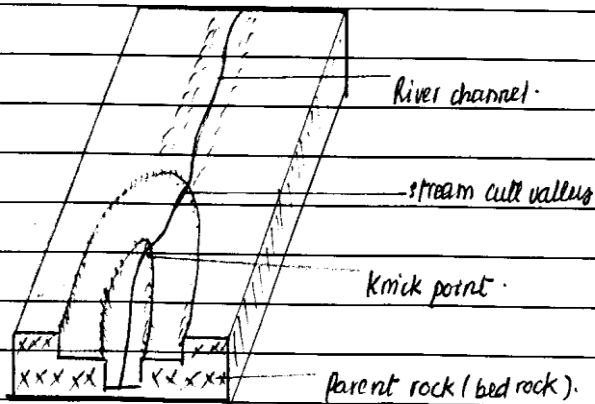 River channel.
stream cult valleys
Knick point.
Parent rock (bed rock).